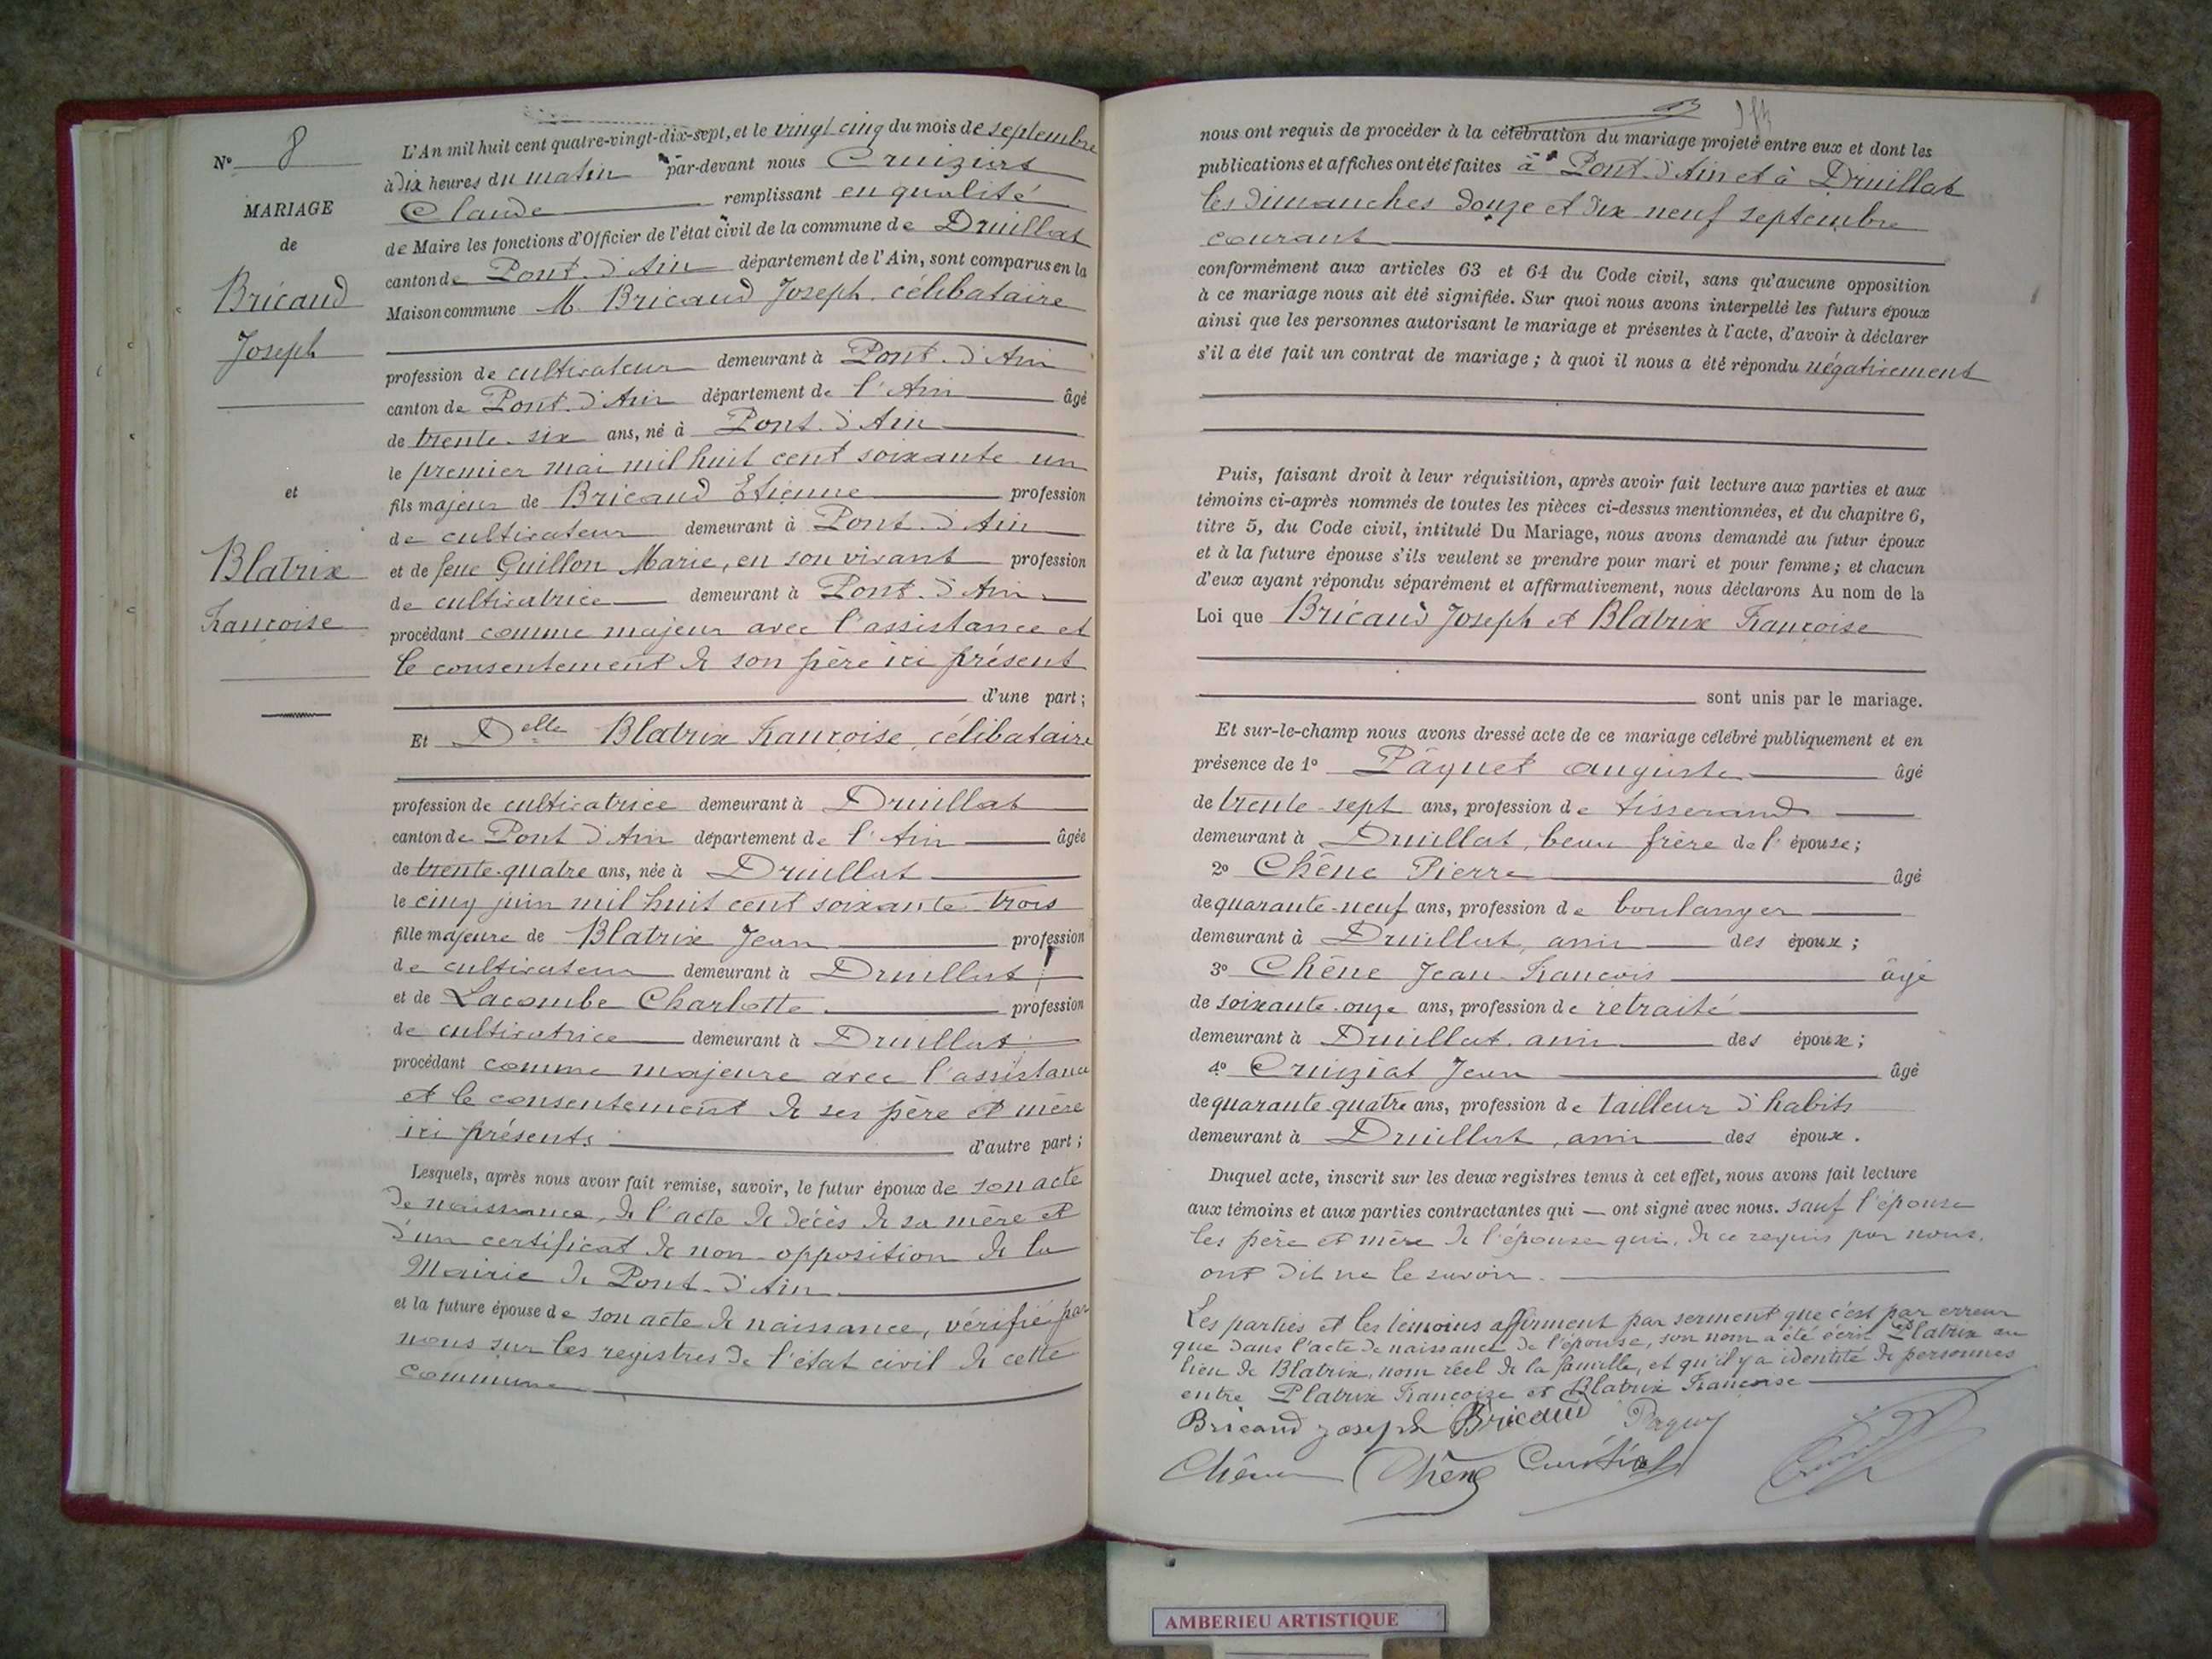 N° 8
MARIAGE
de
Bricaud
Joseph
et
Blatrix
Françoise
L'An mil huit cent quatre-vingt-dix-sept, et le vingt cinq du mois de septembre
à dix heures du matin par-devant nous Cruiziat
Claude remplissant en qualité
de Maire les fonctions d'Officier de l'état civil de la commune de Druillat
canton de Pont-d'Ain département de l'Ain, sont comparus en la
Maison commune M. Bricaud Joseph, célibataire
profession de cultivateur demeurant à Pont-d'Ain
canton de Pont-d'Ain département de l'Ain âgé
de trente-six ans, né à Pont-d'Ain
le premier mai mil huit cent soixante-un
fils majeur de Bricaud Etienne profession
de cultivateur demeurant à Pont-d'Ain
et de feue Guillon Marie, en son vivant profession
de cultivatrice demeurant à Pont-d'Ain
procédant comme majeur avec l'assistance et
le consentement de son père ici présent
d'une part;
Et Delle Blatrix Françoise, célibataire
profession de cultivatrice demeurant à Druillat
canton de Pont d'Ain département de l'Ain âgée
de trente-quatre ans, née à Druillat
le cinq juin mil huit cent soixante-trois
fille majeure de Blatrix Jean profession
de cultivateur demeurant à Druillat
et de Lacombe Charlotte profession
de cultivatrice demeurant à Druillat
procédant comme majeure avec l'assistance
et le consentement de ses père et mère
ici présents d'autre part;
Lesquels, après nous avoir fait remise, savoir, le futur époux de son acte
de naissance, de l'acte de décès de sa mère et
d'un certificat de non-opposition de la
Mairie de Pont-d'Ain
et la future épouse de son acte de naissance, vérifié par
nous sur les registres de l'état civil de cette
commune
nous ont requis de procéder à la célébration du mariage projeté entre eux et dont les
publications et affiches ont été faites à Pont-d'Ain et à Druillat
les dimanches douze et dix neuf septembre
courant
conformément aux articles 63 et 64 du Code civil, sans qu'aucune opposition
à ce mariage nous ait été signifiée. Sur quoi nous avons interpellé les futurs époux
ainsi que les personnes autorisant le mariage et présentes à l'acte, d'avoir à déclarer
s'il a été fait un contrat de mariage; à quoi il nous a été répondu négativement
Puis, faisant droit à leur réquisition, après avoir fait lecture aux parties et aux
témoins ci-après nommés de toutes les pièces ci-dessus mentionnées, et du chapitre 6,
titre 5, du Code civil, intitulé Du Mariage, nous avons demandé au futur époux
et à la future épouse s'ils veulent se prendre pour mari et pour femme; et chacun
d'eux ayant répondu séparément et affirmativement, nous déclarons Au nom de la
Loi que Bricaud Joseph et Blatrix Françoise
sont unis par le mariage.
Et sur-le-champ nous avons dressé acte de ce mariage célébré publiquement et en
présence de 1° Pâquet Auguste âgé
de trente-sept ans, profession de tisserand
demeurant à Druillat, beau frère de l'épouse;
2° Chêne Pierre âgé
de quarante-neuf ans, profession de boulanger
demeurant à Druillat, ami des époux;
3° Chêne Jean-François âgé
de soixante-onze ans, profession de retraité
demeurant à Druillat, ami des époux;
4° Cruiziat Jean âgé
de quarante-quatre ans, profession de tailleur d'habits
demeurant à Druillat, ami des époux.
Duquel acte, inscrit sur les deux registres tenus à cet effet, nous avons fait lecture
aux témoins et aux parties contractantes qui — ont signé avec nous. sauf l'épouse
les père et mère de l'épouse qui, de ce requis par nous,
ont dit ne le savoir.
Les parties et les témoins affirment par serment que c'est par erreur
que dans l'acte de naissance de l'épouse, son nom a été écrit Platrix au
lieu de Blatrix, nom réel de la famille, et qu'il y a identité de personnes
entre Platrix Françoise et Blatrix Françoise
Bricaud Joseph Bricaud Paquet
Chêne Chêne Cruiziat
AMBERIEU ARTISTIQUE